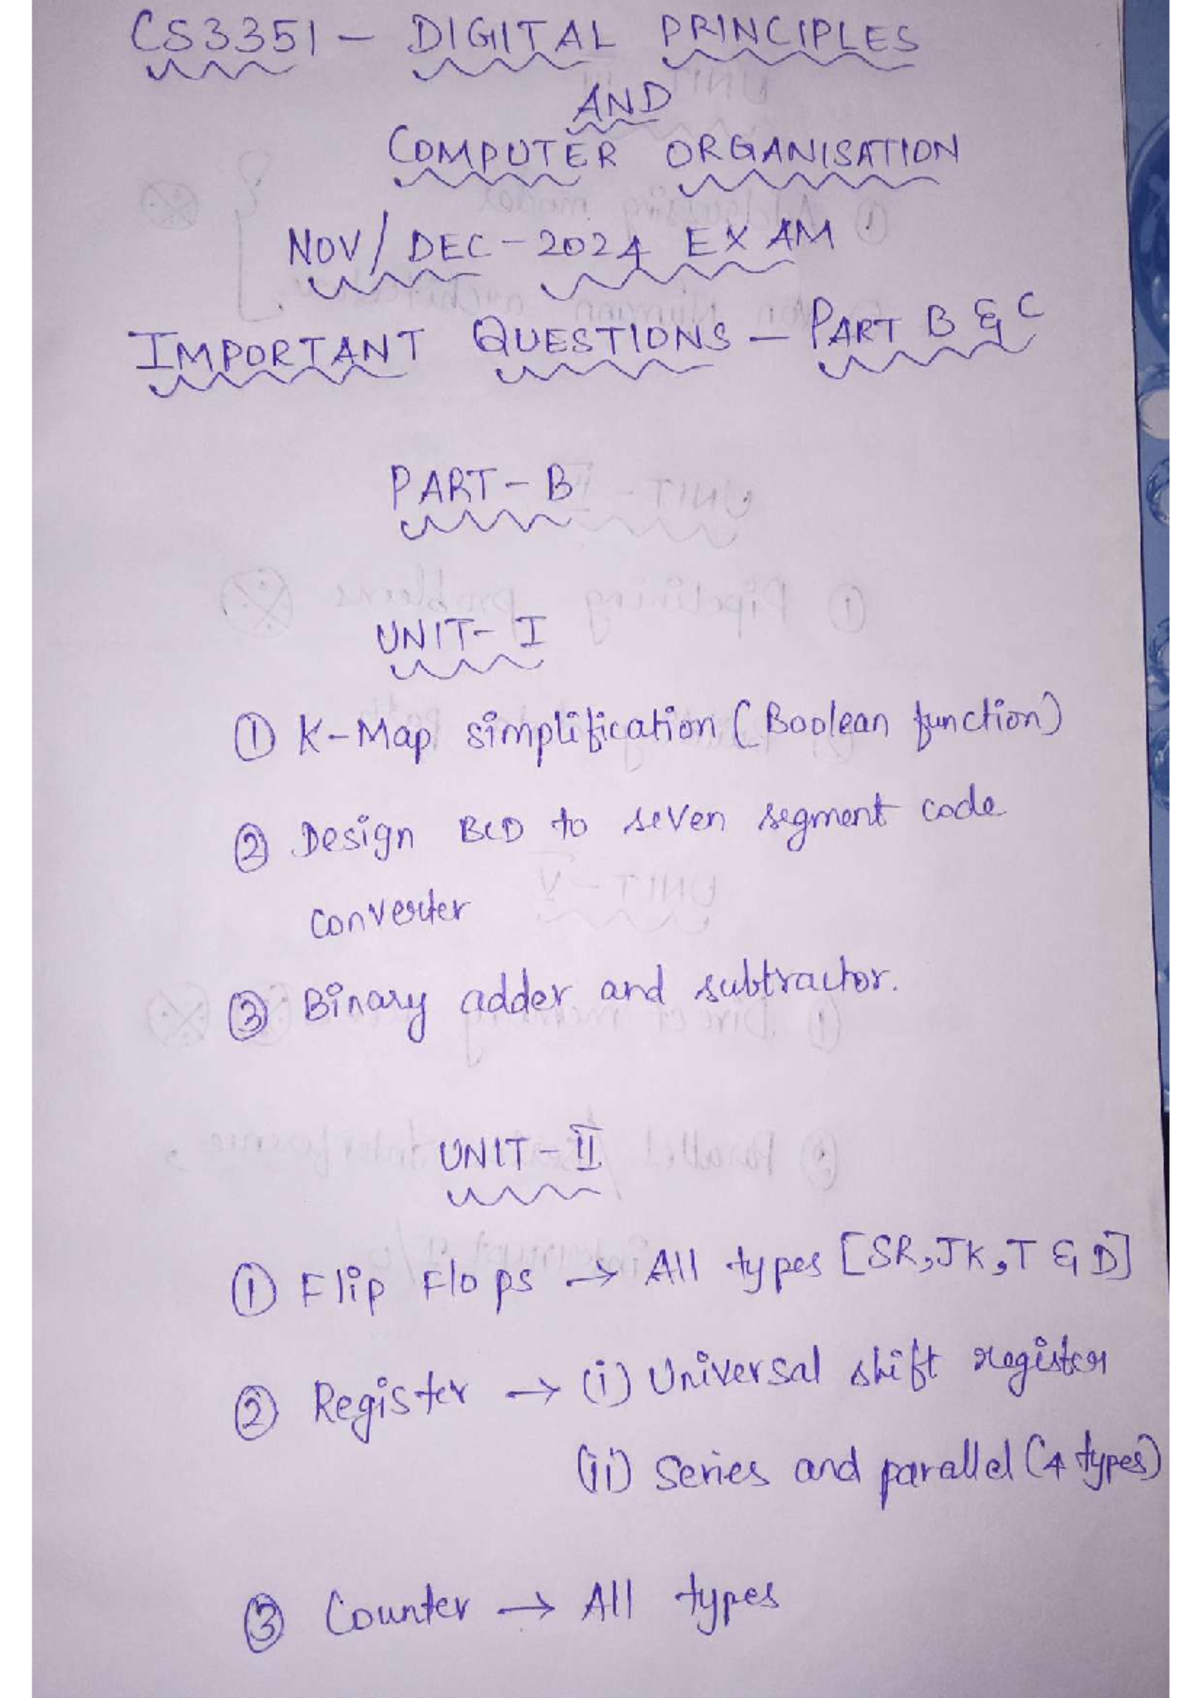 CS3351 - DIGITAL PRINCIPLES
AND
COMPUTER ORGANISATION
NOV/DEC-2024 EXAM
IMPORTANT QUESTIONS - PART B & C
PART-B
UNIT-I
① K-Map simplification (Boolean function)
② Design BCD to seven segment code
converter
③ Binary adder and subtractor.
UNIT-II
① Flip Flops → All types [SR,JK,T & D]
② Register → (i) Universal shift register
(ii) Series and parallel (4 types)
③ Counter → All types